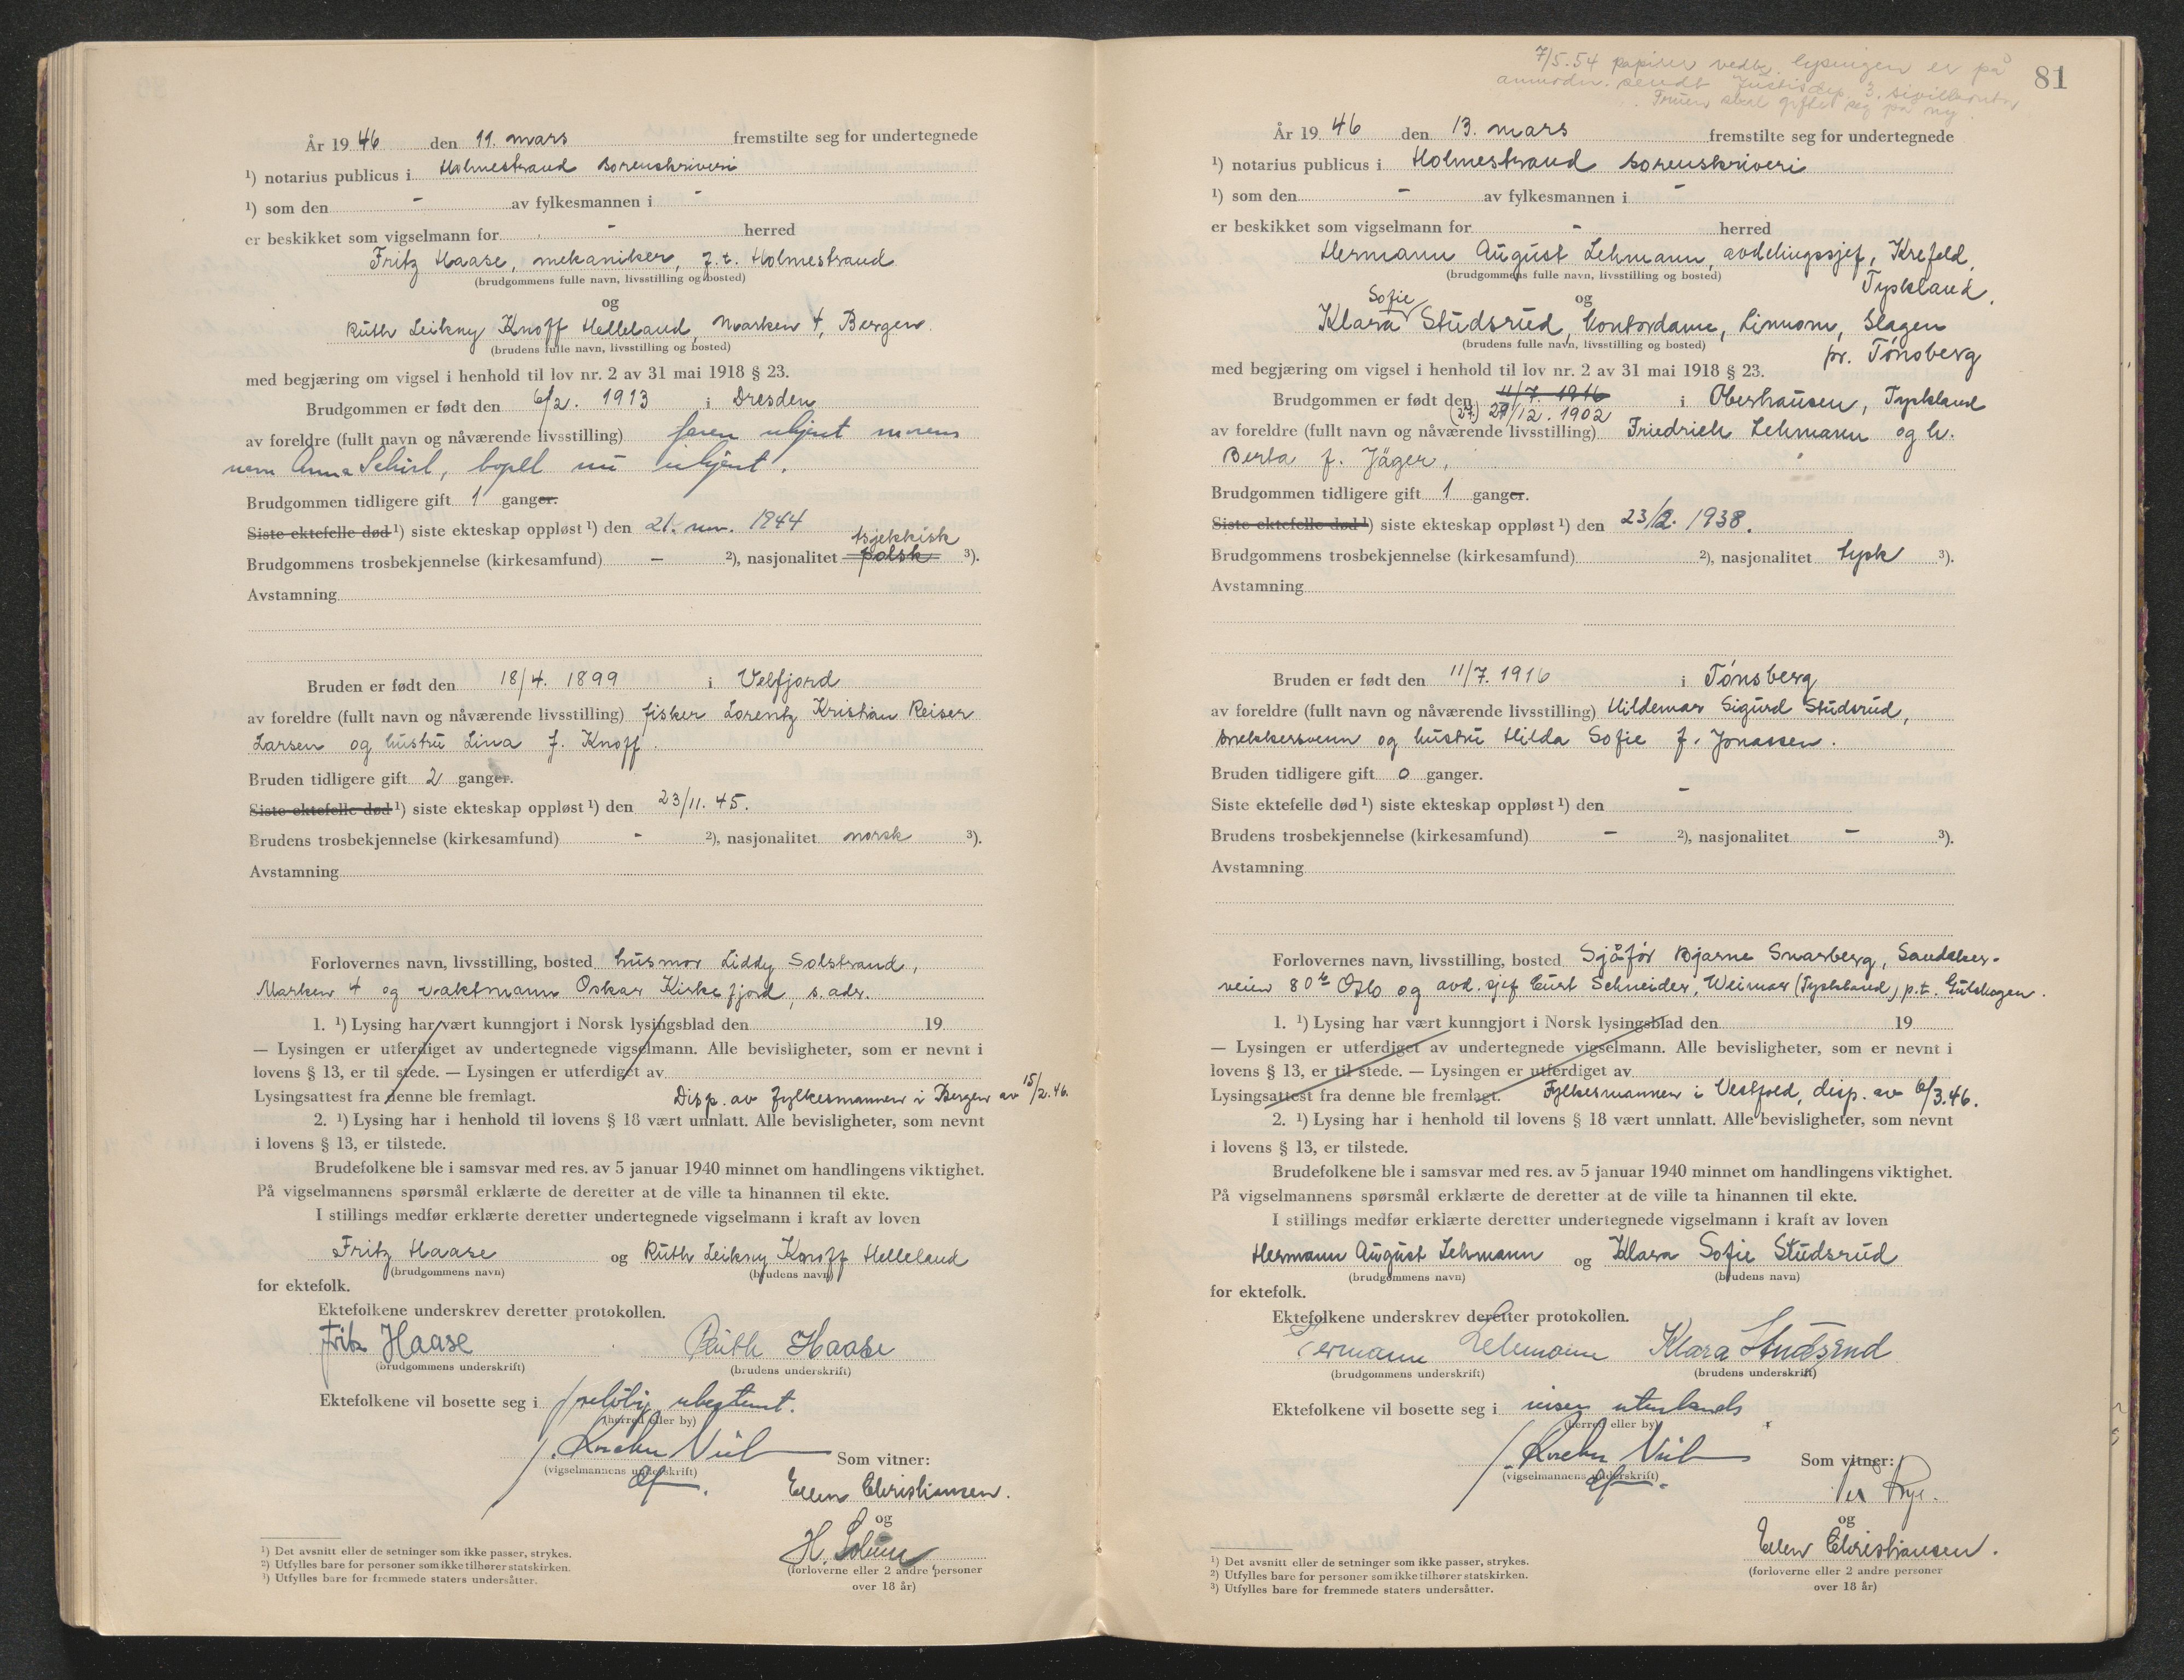 År 1946 den 11. mars fremstilte seg for undertegnede
¹) notarius publicus i Holmestrand sorenskriveri
¹) som den - av fylkesmannen i -
er beskikket som vigselmann for - herred
Fritz Haase, mekaniker, z.t. Holmestrand
(brudgommens fulle navn, livsstilling og bosted)
og
Ruth Leikny Knoff Helleland, Marken 4, Bergen.
(brudens fulle navn, livsstilling og bosted)
med begjæring om vigsel i henhold til lov nr. 2 av 31 mai 1918 § 23.
Brudgommen er født den 6/2. 1913 i Dresden
av foreldre (fullt navn og nåværende livsstilling) faren ukjent morens
navn Anna Schirl, bopel nu ukjent.
Brudgommen tidligere gift 1 ganger.
Siste ektefelle død ¹) siste ekteskap oppløst ¹) den 21. nov. 1944
tsjekkisk
Brudgommens trosbekjennelse (kirkesamfund) - ²), nasjonalitet polsk ³).
Avstamning
Bruden er født den 18/4. 1899 i Velfjord
av foreldre (fullt navn og nåværende livsstilling) fisker Lorentz Kristian Reiser
Larsen og hustru Lina f. Knoff.
Bruden tidligere gift 2 ganger.
Siste ektefelle død ¹) siste ekteskap oppløst ¹) den 23/11. 45.
Brudens trosbekjennelse (kirkesamfund) - ²), nasjonalitet norsk ³).
Avstamning
Forlovernes navn, livsstilling, bosted husmor Liddy Solstrand,
Marken 4 og vaktmann Oskar Kirkefjord, s. adr.
1. ¹) Lysing har vært kunngjort i Norsk lysingsblad den 19
— Lysingen er utferdiget av undertegnede vigselmann. Alle bevisligheter, som er nevnt i
lovens § 13, er til stede. — Lysingen er utferdiget av
Lysingsattest fra denne ble fremlagt. Disp. av fylkesmannen i Bergen av 15/2.46.
2. ¹) Lysing har i henhold til lovens § 18 vært unnlatt. Alle bevisligheter, som nevnt
i lovens § 13, er tilstede.
Brudefolkene ble i samsvar med res. av 5 januar 1940 minnet om handlingens viktighet.
På vigselmannens spørsmål erklærte de deretter at de ville ta hinannen til ekte.
I stillings medfør erklærte deretter undertegnede vigselmann i kraft av loven
Fritz Haase og Ruth Leikny Knoff Helleland
(brudgommens navn) (brudens navn)
for ektefolk.
Ektefolkene underskrev deretter protokollen.
Fritz Haase Ruth Haase
(brudgommens underskrift) (brudens underskrift)
Ektefolkene vil bosette seg i foreløbig ubestemt.
(herred eller by)
(vigselmannens underskrift) Som vitner:
Ellen Christiansen.
og
H. Solum
(forloverne eller 2 andre personer
over 18 år)
¹) Det avsnitt eller de setninger som ikke passer, strykes.
²) Utfylles bare for personer som ikke tilhører statskirken.
³) Utfylles bare for fremmede staters undersåtter.
7/5.54 papirer vedr. lysingen er på
anmodn. sendt Justisdep. 3. sivilkontor
Fruen skal gifte seg på ny
81
År 1946 den 13. mars fremstilte seg for undertegnede
¹) notarius publicus i Holmestrand sorenskriveri
¹) som den - av fylkesmannen i -
er beskikket som vigselmann for - herred
Hermann August Lehmann, avdelingssjef, Krefeld,
(brudgommens fulle navn, livsstilling og bosted) Tyskland.
Sofie og
Klara Studsrud, kontordame, Linnom, Slagen
(brudens fulle navn, livsstilling og bosted) pr. Tønsberg
med begjæring om vigsel i henhold til lov nr. 2 av 31 mai 1918 § 23.
Brudgommen er født den 11/7. 1916 i Oberhausen, Tyskland
(27.) 27/12. 1902
av foreldre (fullt navn og nåværende livsstilling) Friedrich Lehmann og h.
Berta f. Jäger.
Brudgommen tidligere gift 1 ganger.
Siste ektefelle død ¹) siste ekteskap oppløst ¹) den 23/2. 1938.
Brudgommens trosbekjennelse (kirkesamfund) ²), nasjonalitet tysk ³).
Avstamning
Bruden er født den 11/7. 1916 i Tønsberg
av foreldre (fullt navn og nåværende livsstilling) Hildemar Sigurd Studsrud,
snekkersvenn og hustru Hilda Sofie f. Jonassen.
Bruden tidligere gift 0 ganger.
Siste ektefelle død ¹) siste ekteskap oppløst ¹) den -
Brudens trosbekjennelse (kirkesamfund) - ²), nasjonalitet - ³).
Avstamning
Forlovernes navn, livsstilling, bosted Sjåfør Bjarne Snarberg, Sandaker-
veien 80 b Oslo og avd. sjef Curt Schneider, Weimar (Tyskland) p.t. Gulskogen.
1. ¹) Lysing har vært kunngjort i Norsk lysingsblad den 19
— Lysingen er utferdiget av undertegnede vigselmann. Alle bevisligheter, som er nevnt i
lovens § 13, er til stede. — Lysingen er utferdiget av
Lysingsattest fra denne ble fremlagt. Fylkesmannen i Vestfold, disp. av 6/3.46.
2. ¹) Lysing har i henhold til lovens § 18 vært unnlatt. Alle bevisligheter, som nevnt
i lovens § 13, er tilstede.
Brudefolkene ble i samsvar med res. av 5 januar 1940 minnet om handlingens viktighet.
På vigselmannens spørsmål erklærte de deretter at de ville ta hinannen til ekte.
I stillings medfør erklærte deretter undertegnede vigselmann i kraft av loven
Hermann August Lehmann og Klara Sofie Studsrud
(brudgommens navn) (brudens navn)
for ektefolk.
Ektefolkene underskrev deretter protokollen.
Hermann Lehmann Klara Studsrud
(brudgommens underskrift) (brudens underskrift)
Ektefolkene vil bosette seg i reiser utenlands
(herred eller by)
(vigselmannens underskrift) Som vitner:
Per Rye.
og
Ellen Christiansen.
(forloverne eller 2 andre personer
over 18 år)
¹) Det avsnitt eller de setninger som ikke passer, strykes.
²) Utfylles bare for personer som ikke tilhører statskirken.
³) Utfylles bare for fremmede staters undersåtter.